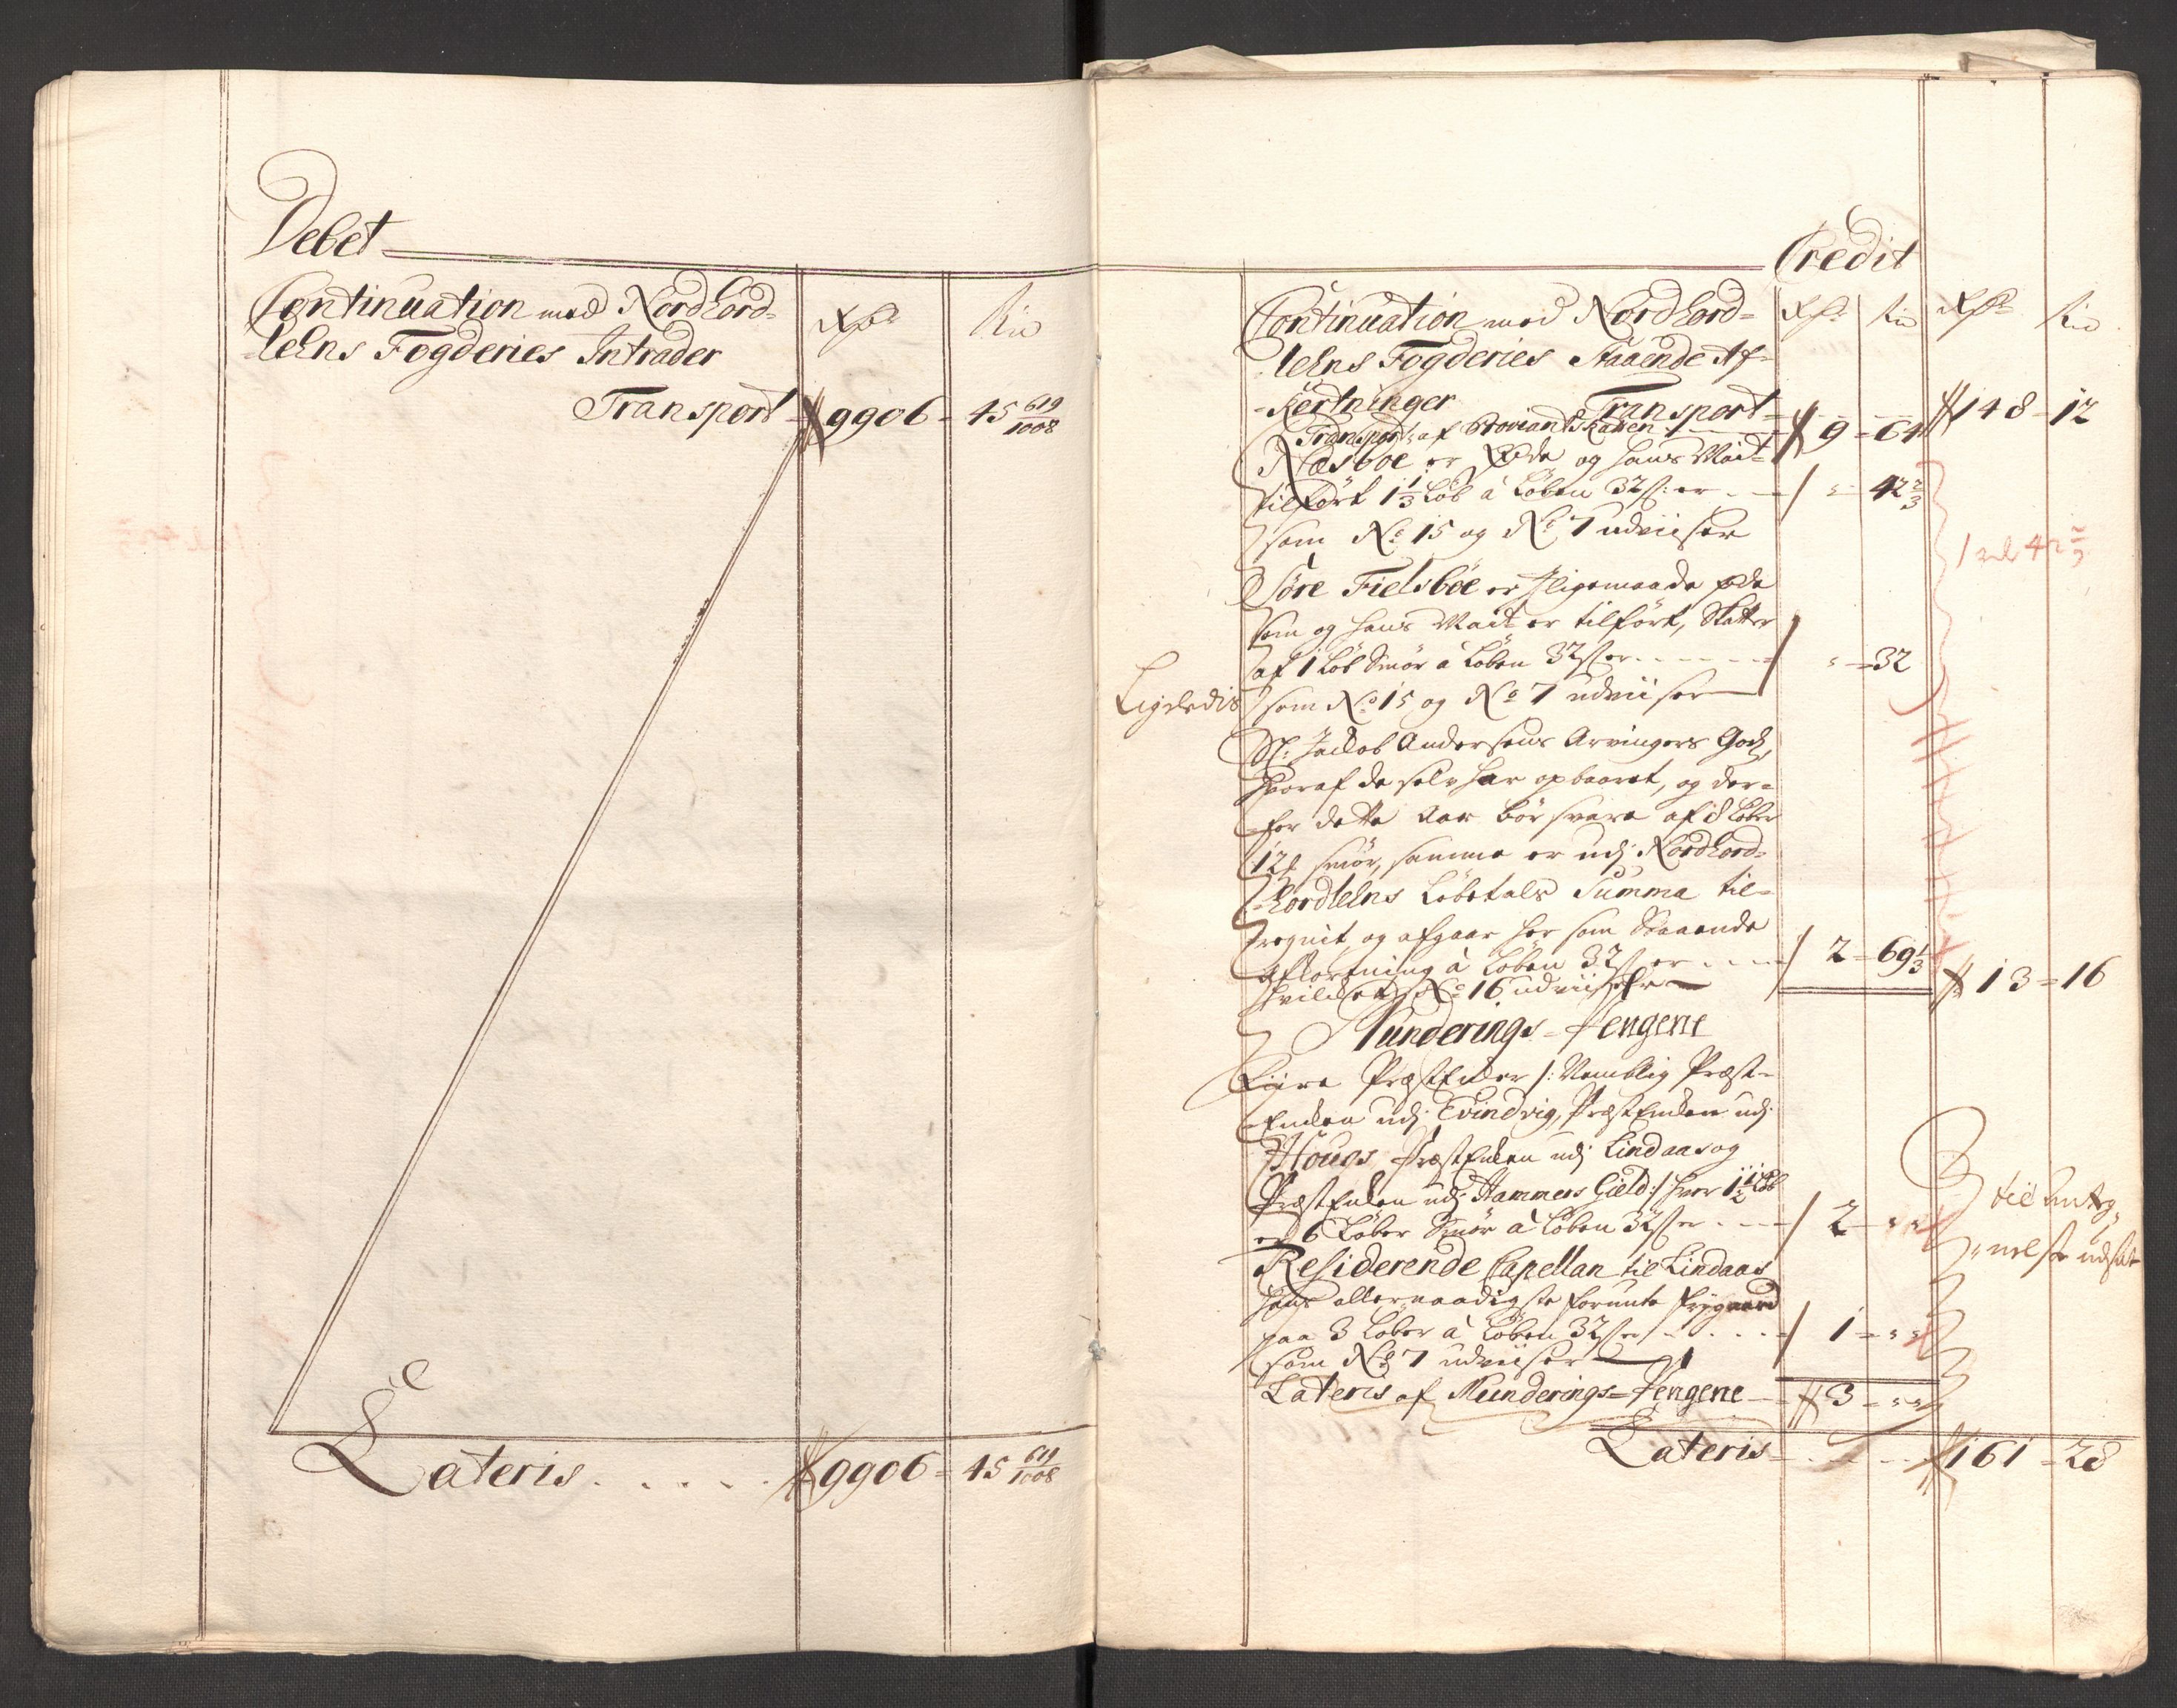 Debet
Continuation med Nordhord-
lehns Fogderies Intrader
Rdr
Transport - 9906 - 45 619/1008
Lateris . . . . . 9906 - 45 619/1008
Credit
Continuation med Nordhord-
lehns Fogderies Staaende Af-
Kortninger Transport - 148 - 12
Transport af Proviant Skatten - 9 - 64
Næsbøe er øde og hans Mait
tilført 1 1/3 Løb à Løben 32 s: er - - 42 2/3
som No 15 og No 7 udviiser
1 rd 42 2/3
Søre Fielsbøe er ligemaade øde
som og hans Mait er tilført, Skatter
af 1 Løb Smør à Løben 32 s er - - - - 32
Ligeledis
som No 15 og No 7 udviiser
Sl: Jacob Andersens Arvingers Godz,
hvoraf de selv har opbaaret, og der-
for dette Aar bør svare af 8 Løber
12 smør, samme er udj Nordhord-
hordlehns Løbetals Summa til-
regnit, og afgaar her som Staaende
afkortning à Løben 32 s er - - - 2 - 69 1/3
hvilket No 16 udviiser 13 - 16
Munderings-Pengene
Fiire PræstEnker /: Nemblig Præst-
Enken udj Evindvig, PræstEnken udj
Hougs PræstEnken udj Lindaas og
PræstEnken udj Hammers Gield :/ hver 1 1/2 Løb
er 6 Løber Smør à Løben 32 s er - - - 2 - "
til Anteg-
nelse udsat
Residerende Capellan til Lindaas
hans allernaadigste forunte frygaard
paa 3 Løber à Løben 32 s er - - - 1 - "
som No 7 udviiser
Lateris af Munderings-Pengene - 3 - "
Lateris - . - . - 161 - 28